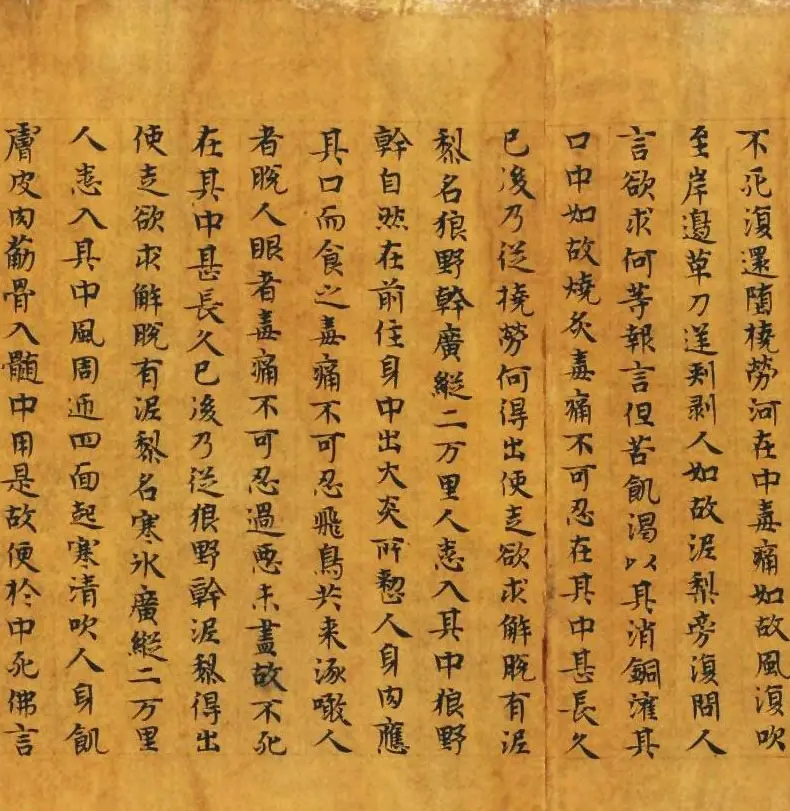 不死復還堕橈勞河在中毒痛如故風復吹
至岸邊草刀逆刾剥人如故泥梨旁復問人
言欲求何等報言但苦飢渴以其消銅灌其
口中如故燒炙毒痛不可忍在其中甚長久
已後乃從橈勞何得出便走欲求解脫有泥
黎名狼野幹廣縱二万里人悉入其中狼野
幹自然在前住身中出大炎所人身肉應
其口而食之毒痛不可忍飛鳥共来涿噉人
者脫人眼者毒痛不可忍過悪未盡故不死
在其中甚長久已後乃從狼野幹泥黎得出
使走欲求解脫有泥黎名寒氷廣縱二万里
人悉入其中風周迊四面起寒清吹人身飢
膚皮肉筋骨入髓中用是故便於中死佛言